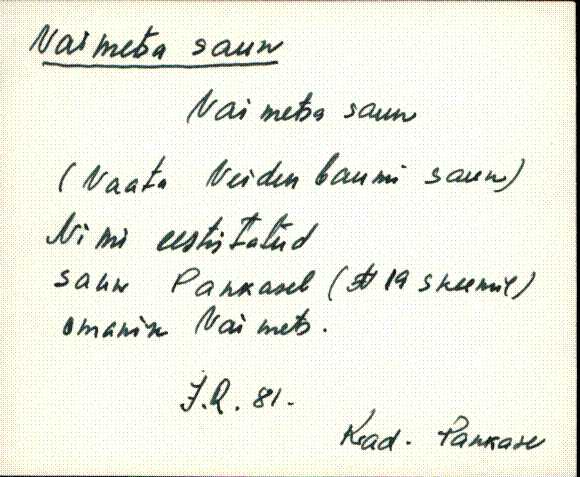 Naimetsa saun
Naimetsa saun
(Vaata Neidenbaumi saun)
Nimi eestistatud
saun Pankasel (19 skeemil)
omanik Naimets.
J.R. 81.
Kad. Pankase